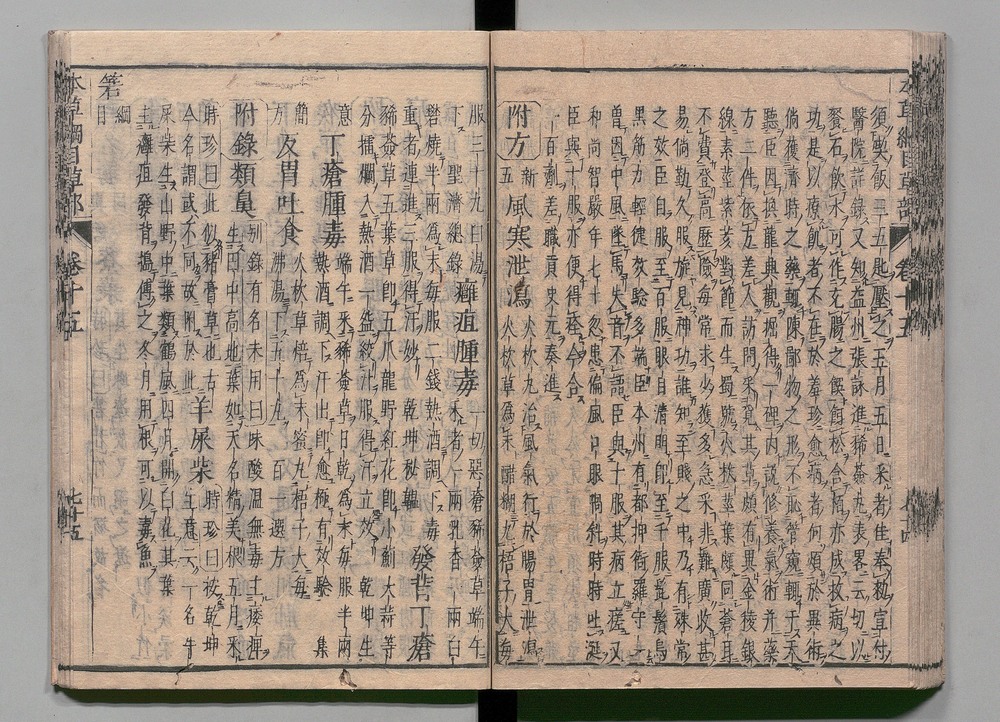 本草綱目草部 卷十五
須喫飯三五匙壓之五月五日采者佳奉敕宣付
醫院詳錄又知益州張詠進豨薟丸表畧云切以
餐石飲水可作充腸之饌餌松含栢亦成救病之
功是以療飢者不在於羞珍愈病者何煩於異術
倘獲濟時之藥輙陳鄙物之形不恥管窺輙干天
聽臣因換龍興觀掘得一碑内說修養氣術并藥
方二件依方差人訪問采覓其草頗有異金稜銀
線素莖紫荄對節而生蜀號火枕莖葉頗同蒼耳
不費登高歷險每常求少獲多急采非難廣收甚
易倘勤久服旋見神功誰知至賤之中乃有殊常
之效臣自喫至百服眼目清明卽至千服髭鬢烏
黑筋力輕健效驗多端臣本州有都押衙羅守一
曾因中風墜馬失音不語臣與十服其病立瘥又
和尚智嚴年七十忽患偏風口眼喎斜時時吐涎
臣與十服亦便得痊今合
一百劑差職貢史元奏進
附方 新五 風寒泄瀉 火枕丸治風氣行於腸胃泄瀉火枕草爲末醋糊丸梧子大每
服三十丸白湯
下 聖濟總錄 癰疽腫毒 一切惡瘡豨薟草端午采者一兩乳香一兩白
礬燒半兩爲末每服二錢熱酒調下毒
重者連進三服得汗妙 乾坤秘韞 發背丁瘡
豨薟草五葉草卽五爪龍野紅花卽小薊大蒜等
分擂爛入熱酒一盞絞汁服得汗立效 乾坤生
意 丁瘡腫毒 端午采豨薟草日乾爲末每服半兩熱酒調下汗出卽愈極有效驗 集
簡
方 反胃吐食 火枕草焙爲末蜜丸梧子大每沸湯下五十丸 百一選方
附錄類鼻 別錄有名未用曰味酸溫無毒主痿痺生田中高地葉如天名精美根五月采
時珍曰此似豬膏草也古
今名謂或不同故附於此 羊屎柴 時珍曰一名牛
屎柴生山野中葉類鶴虱四月開白花其葉
主癰疽發背搗傅之冬月用根可以毒魚
箬 綱目
本草綱目草部 卷十五 七十五